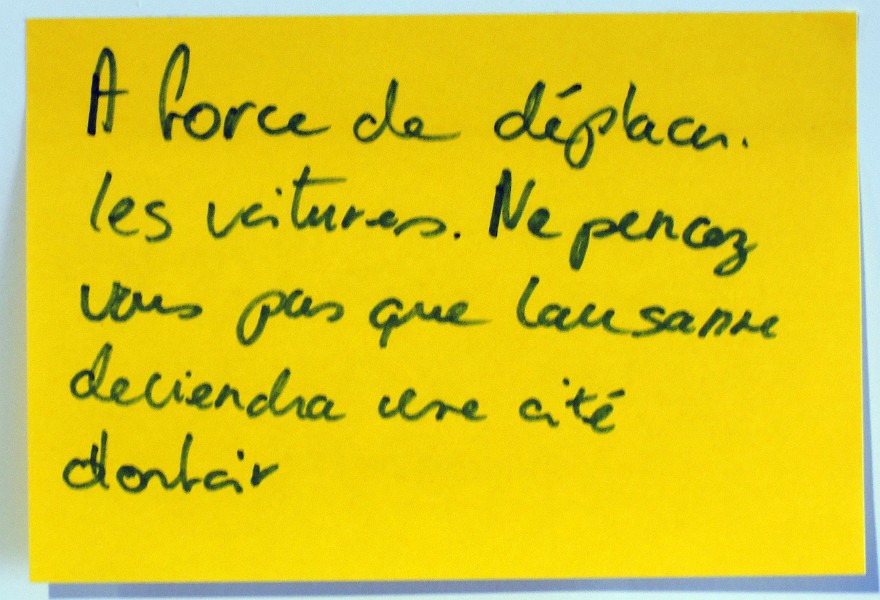 A force de déplacer.
les voitures. Ne pencez
vous pas que Lausanne
deviendra une cité
dortoir